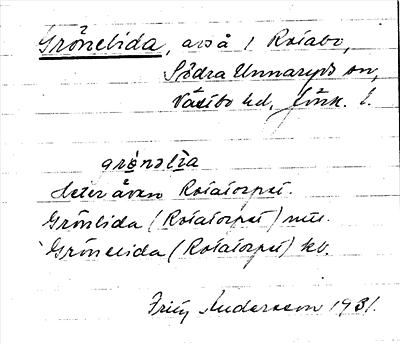 Grönelida, avs å 1 Rotabo,
Södra Unnaryds sn,
Västbo hd, Jönk. l.
grö̀nəlìa
Heter även Rotatorpet.
Grönlida (Rotatorpet) mtl.
Grönelida (Rotatorpet) kv.
Frity Andersson 1931.